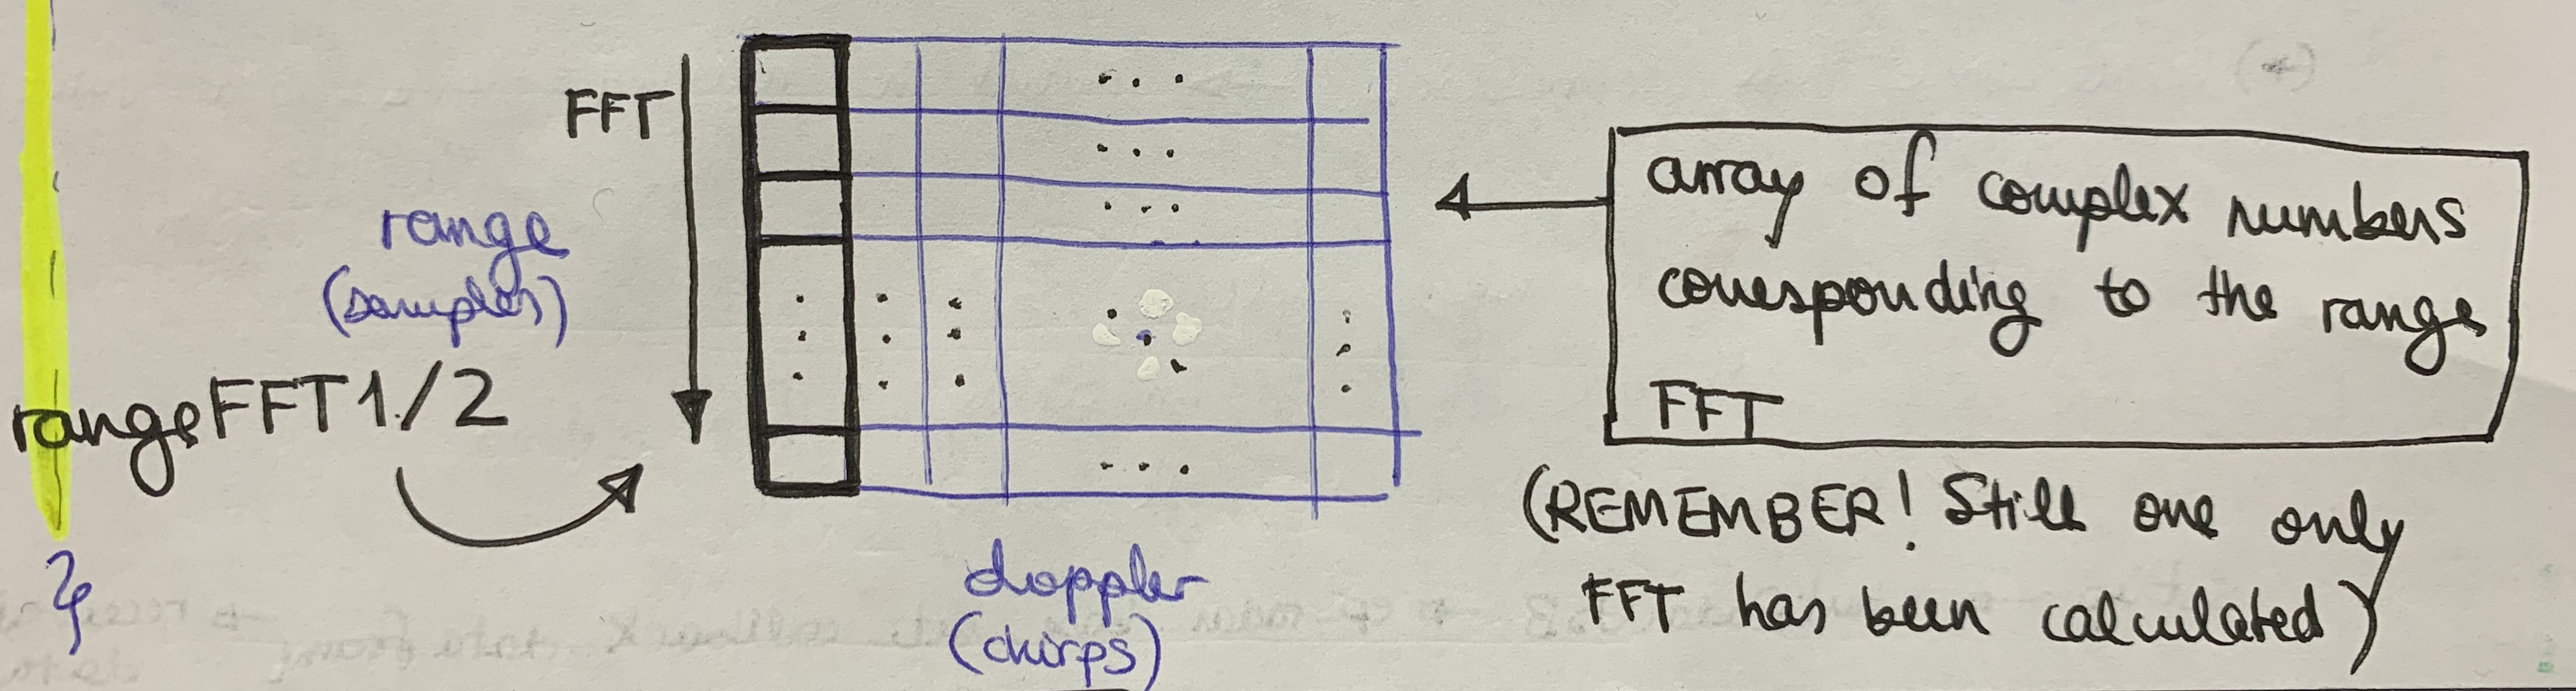 FFT
range
(samples)
rangeFFT1/2
doppler
(chirps)
array of complex numbers
corresponding to the range
FFT
(REMEMBER! Still one only
FFT has been calculated)